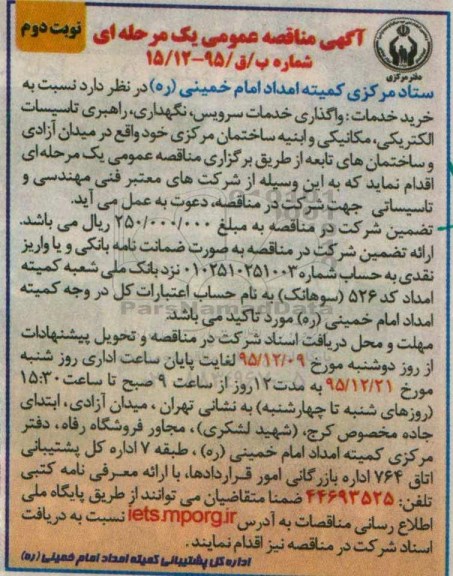 نوبت دوم
آگهی مناقصه عمومی یک مرحله ای
شماره ب/ق/۹۵-۱۵/۱۲
دفتر مرکزی
ستاد مرکزی کمیته امداد امام خمینی (ره) در نظر دارد نسبت به
خرید خدمات : واگذاری خدمات سرویس، نگهداری، راهبری تاسیسات
الکتریکی، مکانیکی و ابنیه ساختمان مرکزی خود واقع در میدان آزادی
و ساختمان های تابعه از طریق برگزاری مناقصه عمومی یک مرحله ای
اقدام نماید که به این وسیله از شرکت های معتبر فنی مهندسی و
تاسیساتی جهت شرکت در مناقصه، دعوت به عمل می آید.
تضمین شرکت در مناقصه به مبلغ ۲۵۰/۰۰۰/۰۰۰ ریال می باشد.
ارائه تضمین شرکت در مناقصه به صورت ضمانت نامه بانکی و یا واریز
نقدی به حساب شماره ۰۱۰۲۵۱۰۲۵۱۰۰۳ نزد بانک ملی شعبه کمیته
امداد کد ۵۲۶ (سوهانک) به نام حساب اعتبارات کل در وجه کمیته
امداد امام خمینی (ره) مورد تاکید می باشد.
مهلت و محل دریافت اسناد شرکت در مناقصه و تحویل پیشنهادات
از روز دوشنبه مورخ ۹۵/۱۲/۰۹ لغایت پایان ساعت اداری روز شنبه
مورخ ۹۵/۱۲/۲۱ به مدت ۱۲ روز از ساعت ۹ صبح تا ساعت ۱۵:۳۰
(روزهای شنبه تا چهارشنبه) به نشانی تهران ، میدان آزادی، ابتدای
جاده مخصوص کرج، (شهید لشکری) ، مجاور فروشگاه رفاه ، دفتر
مرکزی کمیته امداد امام خمینی (ره) ، طبقه ۷ اداره کل پشتیبانی
اتاق ۷۶۴ اداره بازرگانی امور قراردادها، با ارائه معرفی نامه کتبی
تلفن: ۴۴۶۹۳۵۲۵ ضمنا متقاضیان می توانند از طریق پایگاه ملی
اطلاع رسانی مناقصات به آدرس iets.mporg.ir نسبت به دریافت
اسناد شرکت در مناقصه نیز اقدام نمایند.
اداره کل پشتیبانی کمیته امداد امام خمینی (ره)